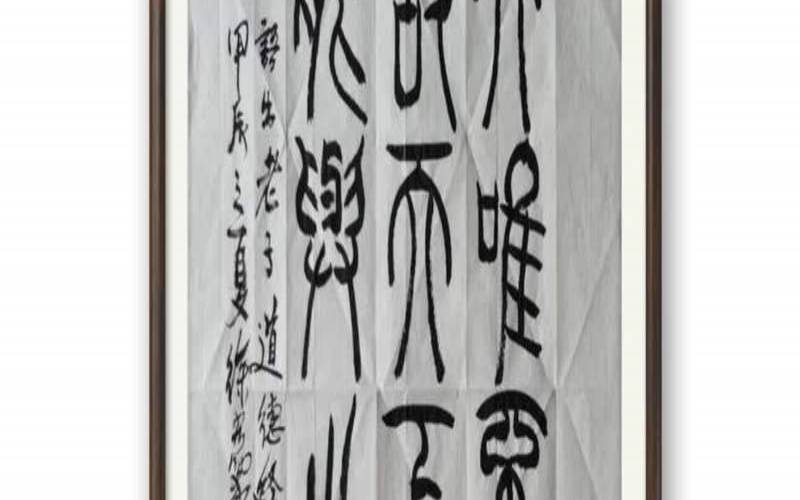 夫唯不
故天下
能與之
語出老子道德經
甲辰之夏徐